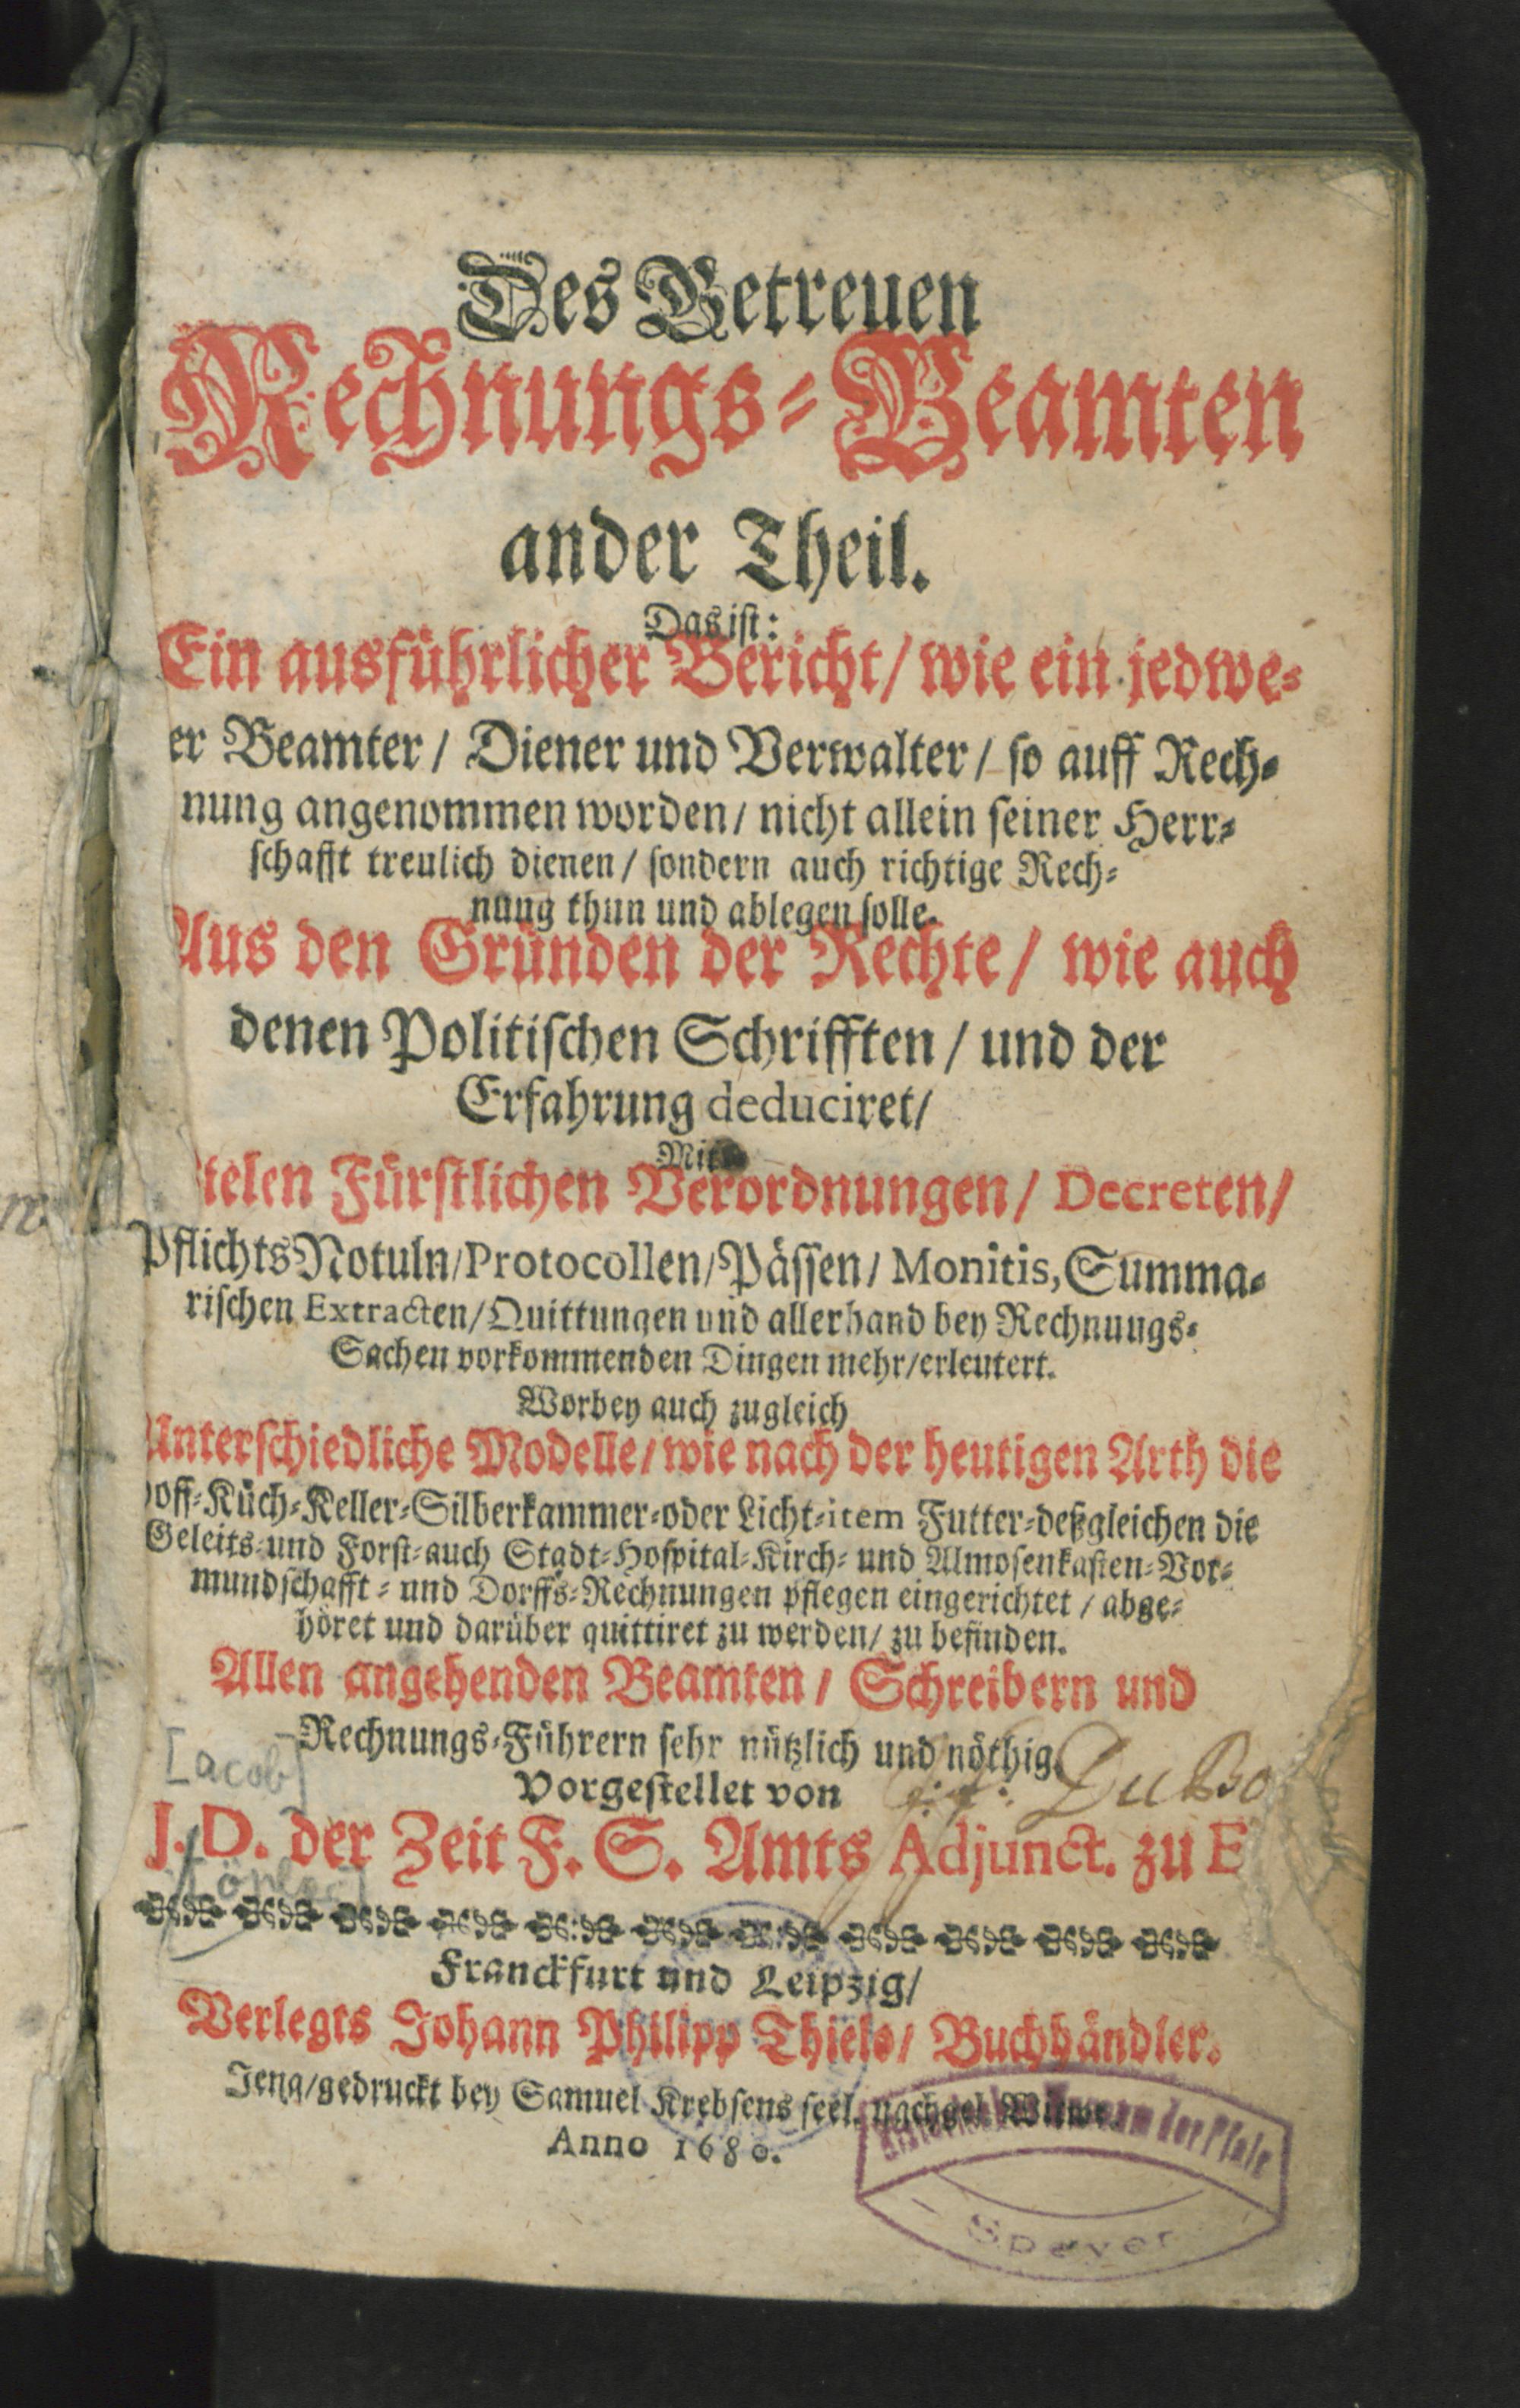 Des Getreuen
Rechnungs-Beamten
ander Theil.
Das ist:
Ein ausführlicher Bericht/ wie ein jedwe-
er Beamter/ Diener und Verwalter/ so auff Rech-
nung angenommen worden/ nicht allein seiner Herr-
schafft treulich dienen/ sondern auch richtige Rech-
nung thun und ablegen solle.
Aus den Gründen der Rechte/ wie auch
denen Politischen Schrifften/ und der
Erfahrung deduciret/
Mit
ielen Fürstlichen Verordnungen/ Decreten/
Pflichts Notuln/Protocollen/Pässen/ Monitis, Summa-
rischen Extracten/Quittungen und allerhand bey Rechnungs-
Sachen vorkommenden Dingen mehr/erleutert.
Worbey auch zugleich
Unterschiedliche Modelle/ wie nach der heutigen Arth die
off-Küch-Keller-Silberkammer-oder Licht-item Futter-deßgleichen die
Geleits-und Forst-auch Stadt-Hospital-Kirch- und Almosenkasten-Vor-
mundschafft- und Dorffs-Rechnungen pflegen eingerichtet / abge-
höret und darüber quittiret zu werden/ zu befinden.
Allen angehenden Beamten/ Schreibern und
Rechnungs-Führern sehr nützlich und nöthig
[acob]
Vorgestellet von
DuBo
J. D. der Zeit F. S. Amts Adjunct. zu E
Franckfurt und Leipzig/
Verlegts Johann Philipp Thiele/ Buchhändler.
Jena/gedruckt bey Samuel Krebsens seel. nachgel. Witwe.
Anno 1680.
Historisches Museum der Pfalz
Speyer